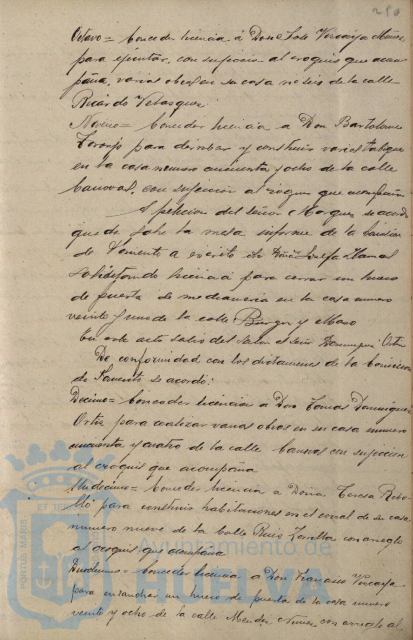 Octavo = Conceder licencia á Don José Vizcaya Muñoz
para ejecutar, con sujecion al croquis que acom
paña, varias obras en su casa nº seis de la calle
Ricardo Velazquez
Noveno = Conceder licencia a Don Bartolomé
Toronjo para derribar y construir varios tabiques
en la casa numero cincuenta y ocho de la calle
Canoval, con sujeccion al croquis que acompaña
A peticion del Señor Marquez se acordó
quede sobre la mesa informe de la Comision
de Fomento a escrito de Doña
solicitando licencia para cerrar un hueco
de puerta de medianeria en la casa numero
veinte y uno de la calle Burgos y Mazo
En este acto salió del Salon el Señor Dominguez Ortiz
De conformidad con los dictamenes de la Comision
de Fomento se acordó:
Decimo = Conceder licencia a Don Tomas Dominguez
Ortiz para realizar varias obras en su casa numero
cincuenta y cuatro de la calle Canovas con sujeccion
al croquis que acompaña
Undecimo = Conceder licencia a Doña Teresa Rebo
llo para construir habitaciones en el corral de su casa
numero nueve de la Calle Ruiz Zorrilla con arreglo
al croquis que acompaña
Duodecimo = Conceder licencia a Don Francisco Vizcaya
para ensanchar un hueco de puerta de la casa numero
veinte y ocho de la calle Mendez Nuñez con arreglo al
PORTUS MARIS
Ayuntamiento de
HUELVA